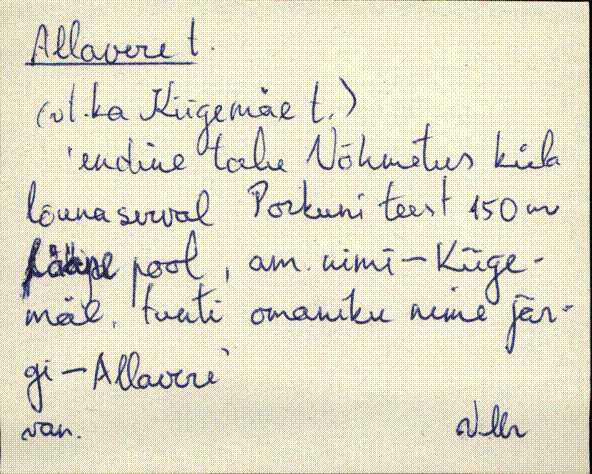 Allavere t.
(vt. ka Kiigemäe t.)
'endine talu Nõhmetus küla
lõunaserval Porkuni teest 150 m
pool, am. nimi – Kiige-
mäe, tunti omaniku nime jär-
gi – Allavere'
van.